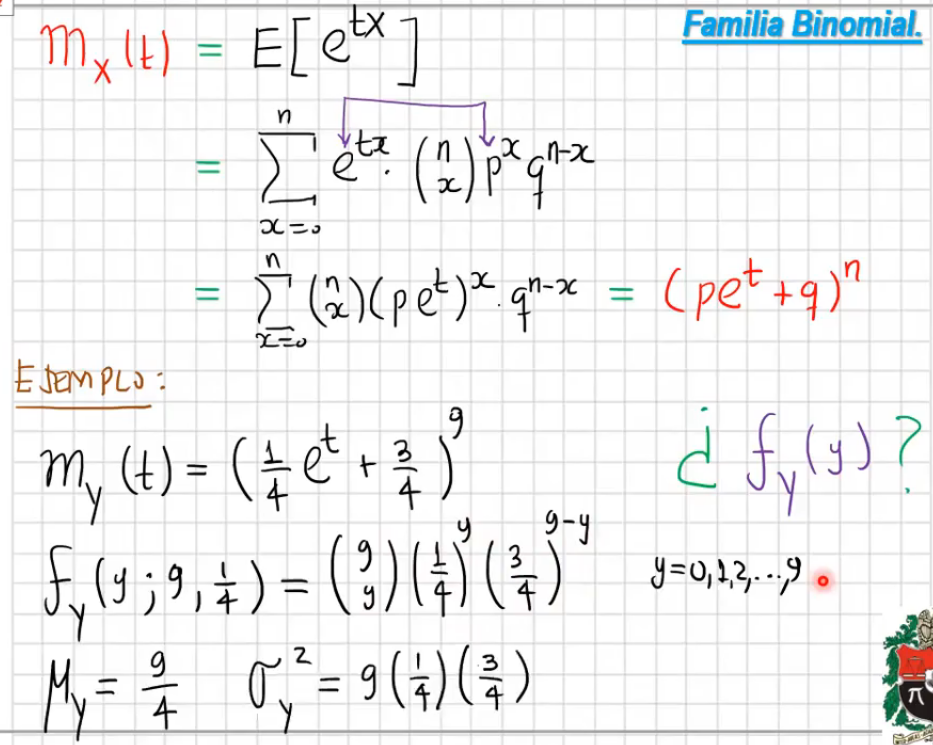 Familia Binomial.
m_x(t) = E[e^{tx}]
= \sum_{x=0}^{n} e^{tx} \cdot \binom{n}{x} p^x q^{n-x}
= \sum_{x=0}^{n} \binom{n}{x} (pe^t)^x \cdot q^{n-x} = (pe^t + q)^n
EJEMPLO:
m_y(t) = (\frac{1}{4} e^t + \frac{3}{4})^9
¿f_y(y)?
f_y(y; 9, \frac{1}{4}) = \binom{9}{y} (\frac{1}{4})^y (\frac{3}{4})^{9-y} y=0,1,2,...,9
μ_y = \frac{9}{4} σ_y^2 = 9(\frac{1}{4})(\frac{3}{4})
π